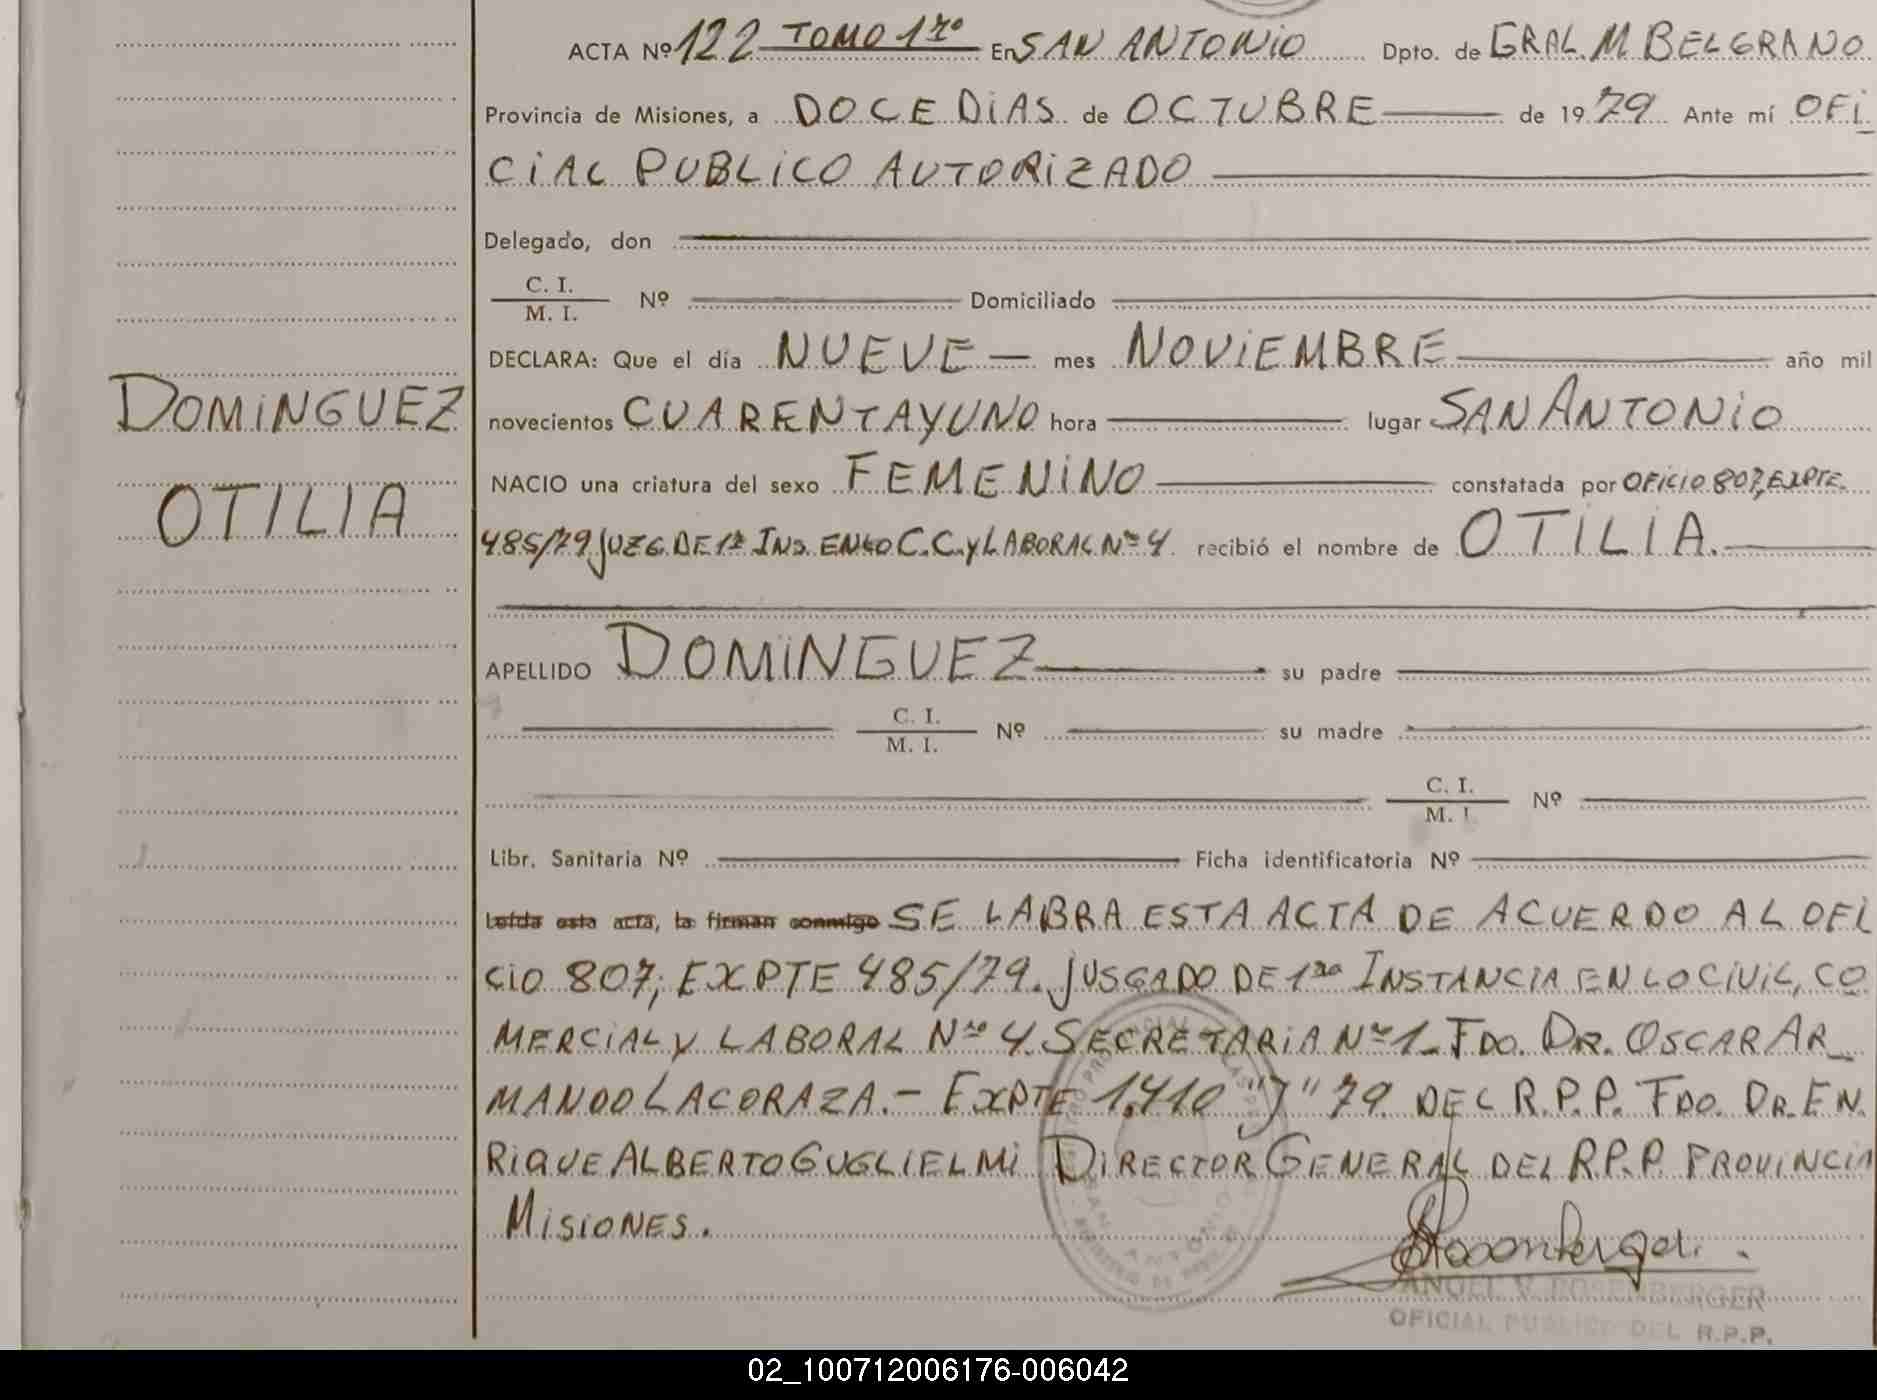 ACTA Nº 122 TOMO 1ro En SAN ANTONIO Dpto. de GRAL. M BELGRANO
Provincia de Misiones, a DOCE DIAS de OCTUBRE de 1979 Ante mí OFI
CIAL PUBLICO AUTORIZADO
Delegado, don
C. I.
M. I. Nº Domiciliado
DECLARA: Que el día NUEVE mes NOVIEMBRE año mil
DOMINGUEZ
novecientos CUARENTA Y UNO hora lugar SAN ANTONIO
NACIO una criatura del sexo FEMENINO constatada por OFICIO 807, EXPTE.
OTILIA
485/79 JUZG. DE 1ra INS. EN LO C.C. y LABORAL Nro 4 recibió el nombre de OTILIA.
APELLIDO DOMINGUEZ su padre
C. I.
M. I. Nº su madre
C. I.
M. I. Nº
Libr. Sanitaria Nº Ficha identificatoria Nº
Leída esta acta, la firman conmigo SE LABRA ESTA ACTA DE ACUERDO AL OFI
CIO 807; EXPTE 485/79. JUSGADO DE 1ra INSTANCIA EN LO CIVIL, CO
MERCIAL y LABORAL Nro 4. SECRETARIA Nro 1_ FDO. DR. OSCAR AR_
MANDO LACORAZA. - EXPTE 1.410 "J" 79 DEL R.P.P. FDO. DR. EN
RIQUE ALBERTO GUGLIELMI DIRECTOR GENERAL DEL R.P.P. PROVINCIA
MISIONES.
SAN ANTONIO
ANGEL V. ROSENBERGER
OFICIAL PUBLICO DEL R.P.P.
02_100712006176-006042